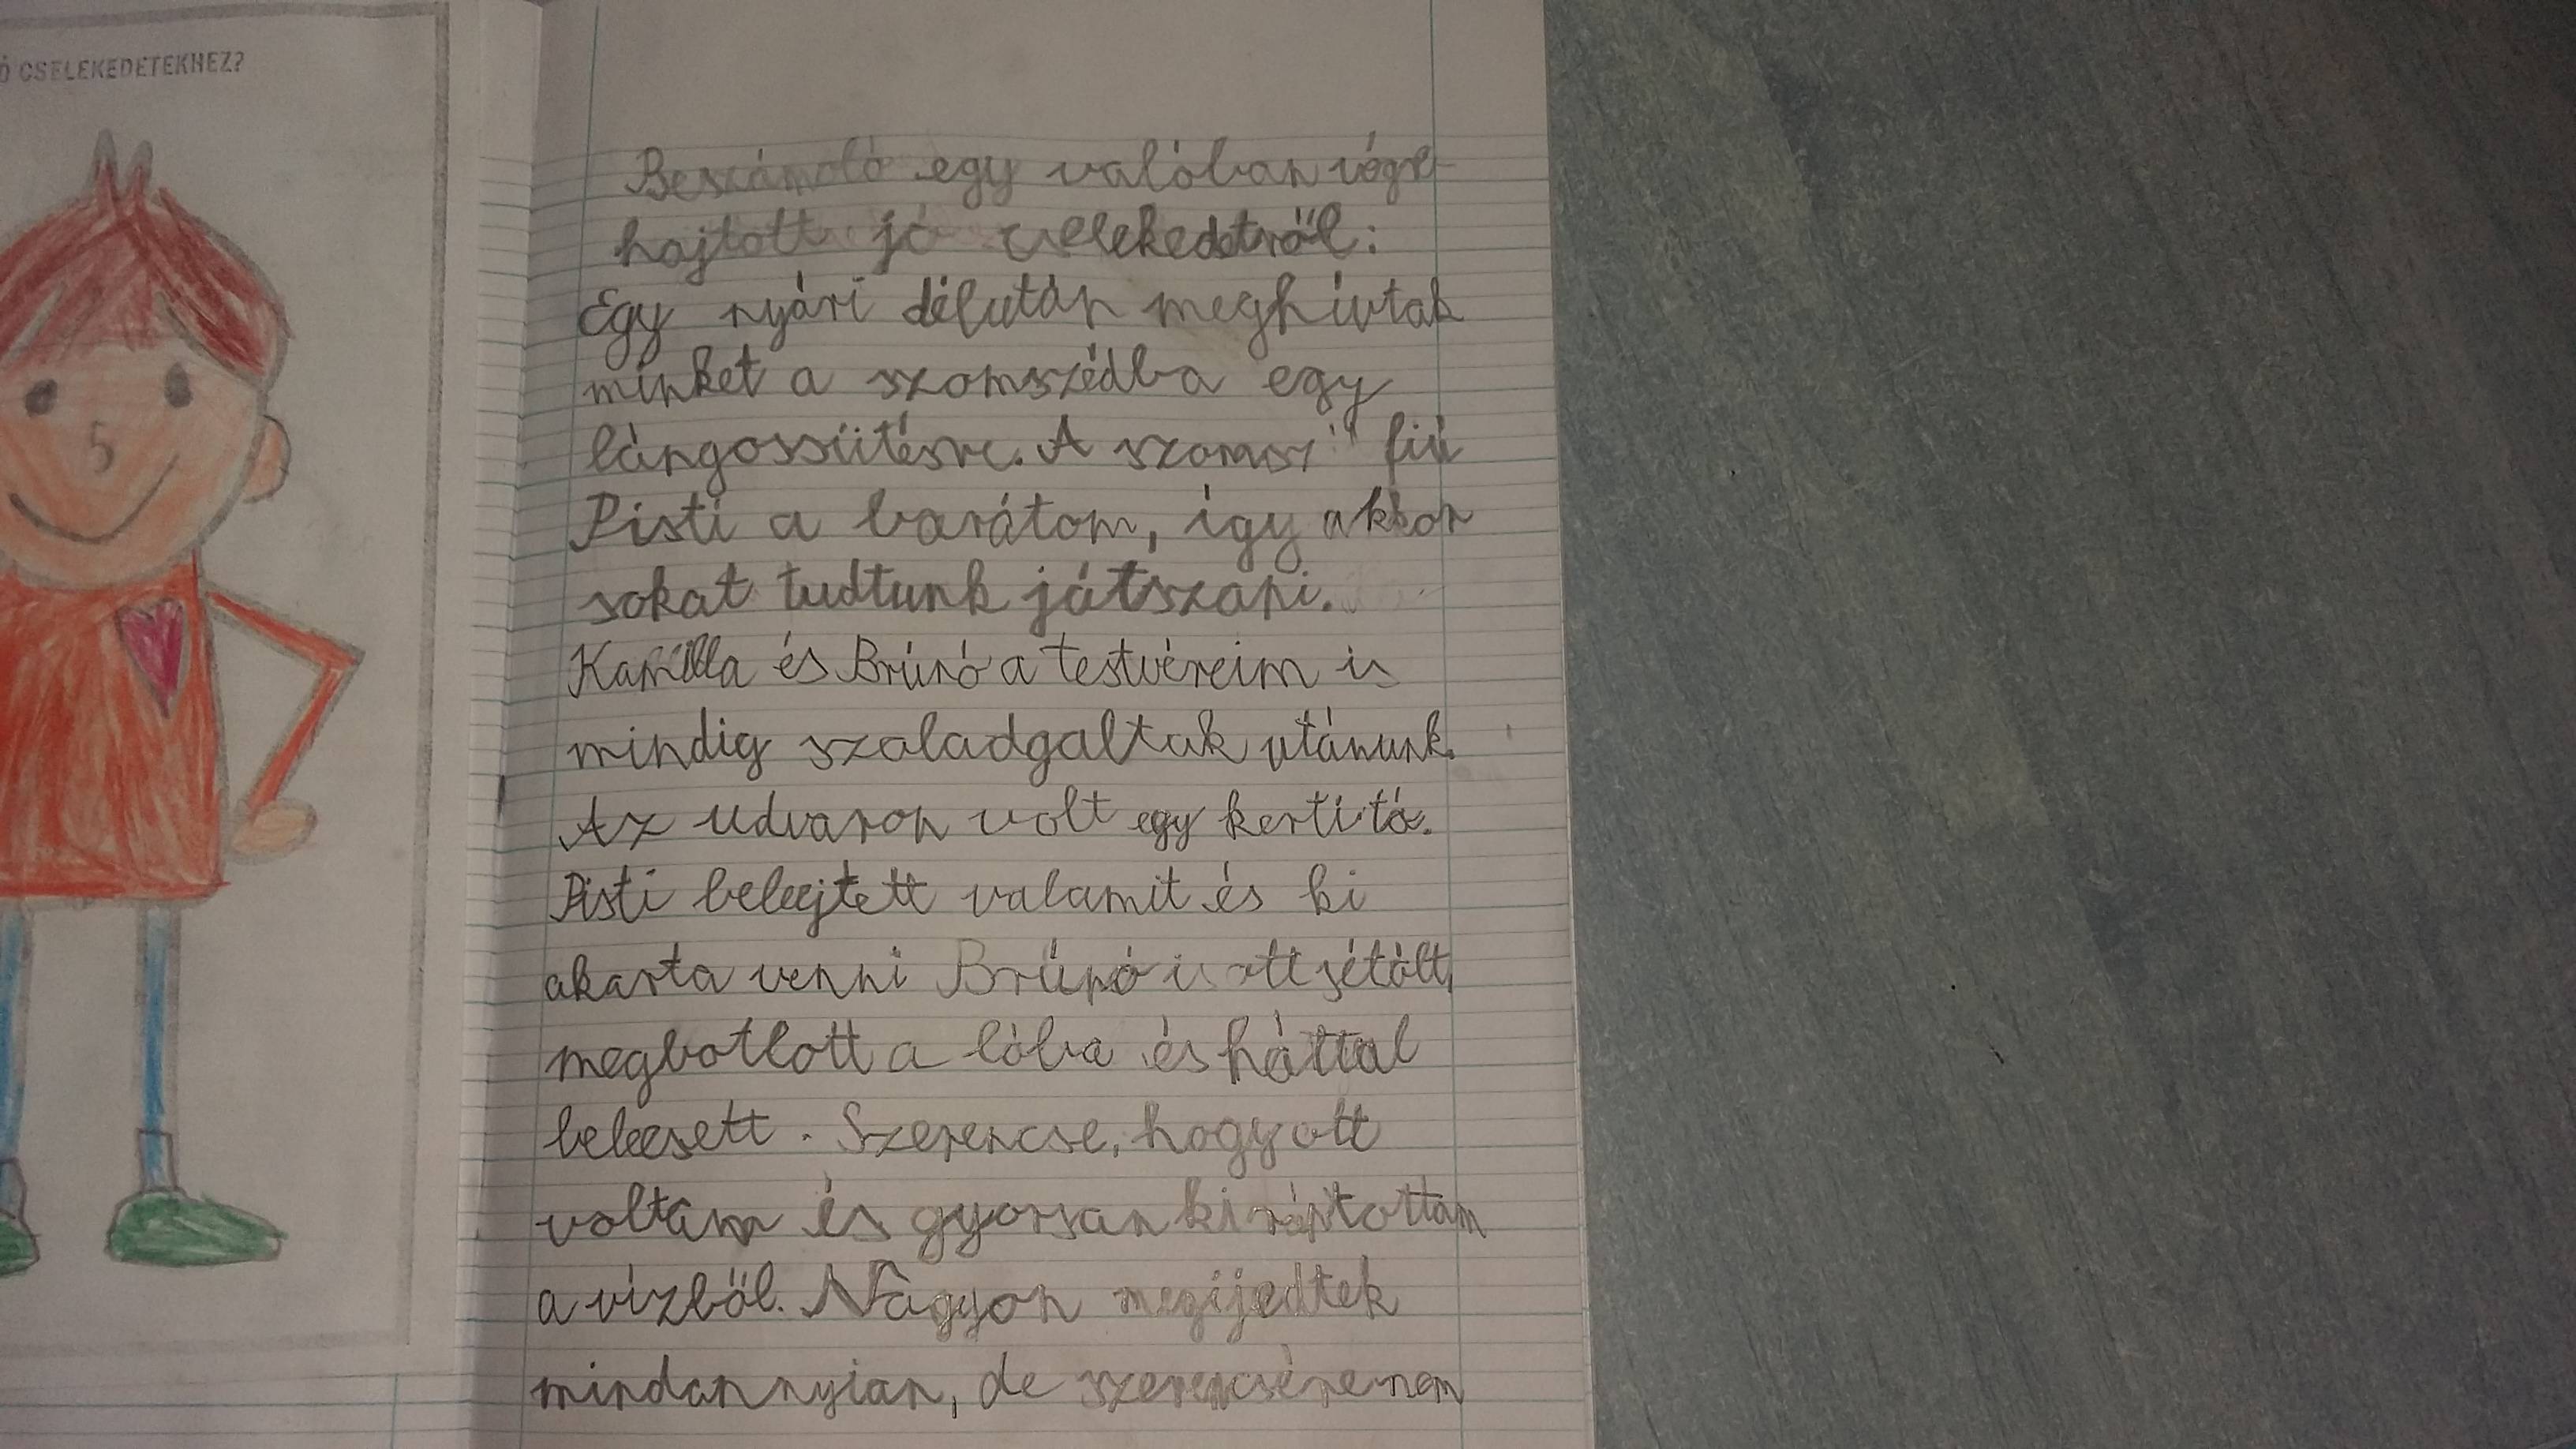 Ó CSELEKEDETEKHEZ?
5
Beszámoló egy valóban végre-
hajtott jó cselekedetről:
Egy nyári délután meghívtak
minket a szomszédba egy
lángossütésre. A szomsz fiú
Pisti a barátom, így akkor
sokat tudtunk játszani.
Kamilla és Brúnó a testvéreim is
mindig szaladgaltak utánunk.
Az udvaron volt egy kerti tó.
Pisti beleejtett valamit és ki
akarta venni Brúnó is ott sétált,
megbotlott a lába és háttal
beleesett. Szerencse, hogy ott
voltam és gyorsan kirántottam
a vízből. Nagyon megijedtek
mindannyian, de szerencsére nem